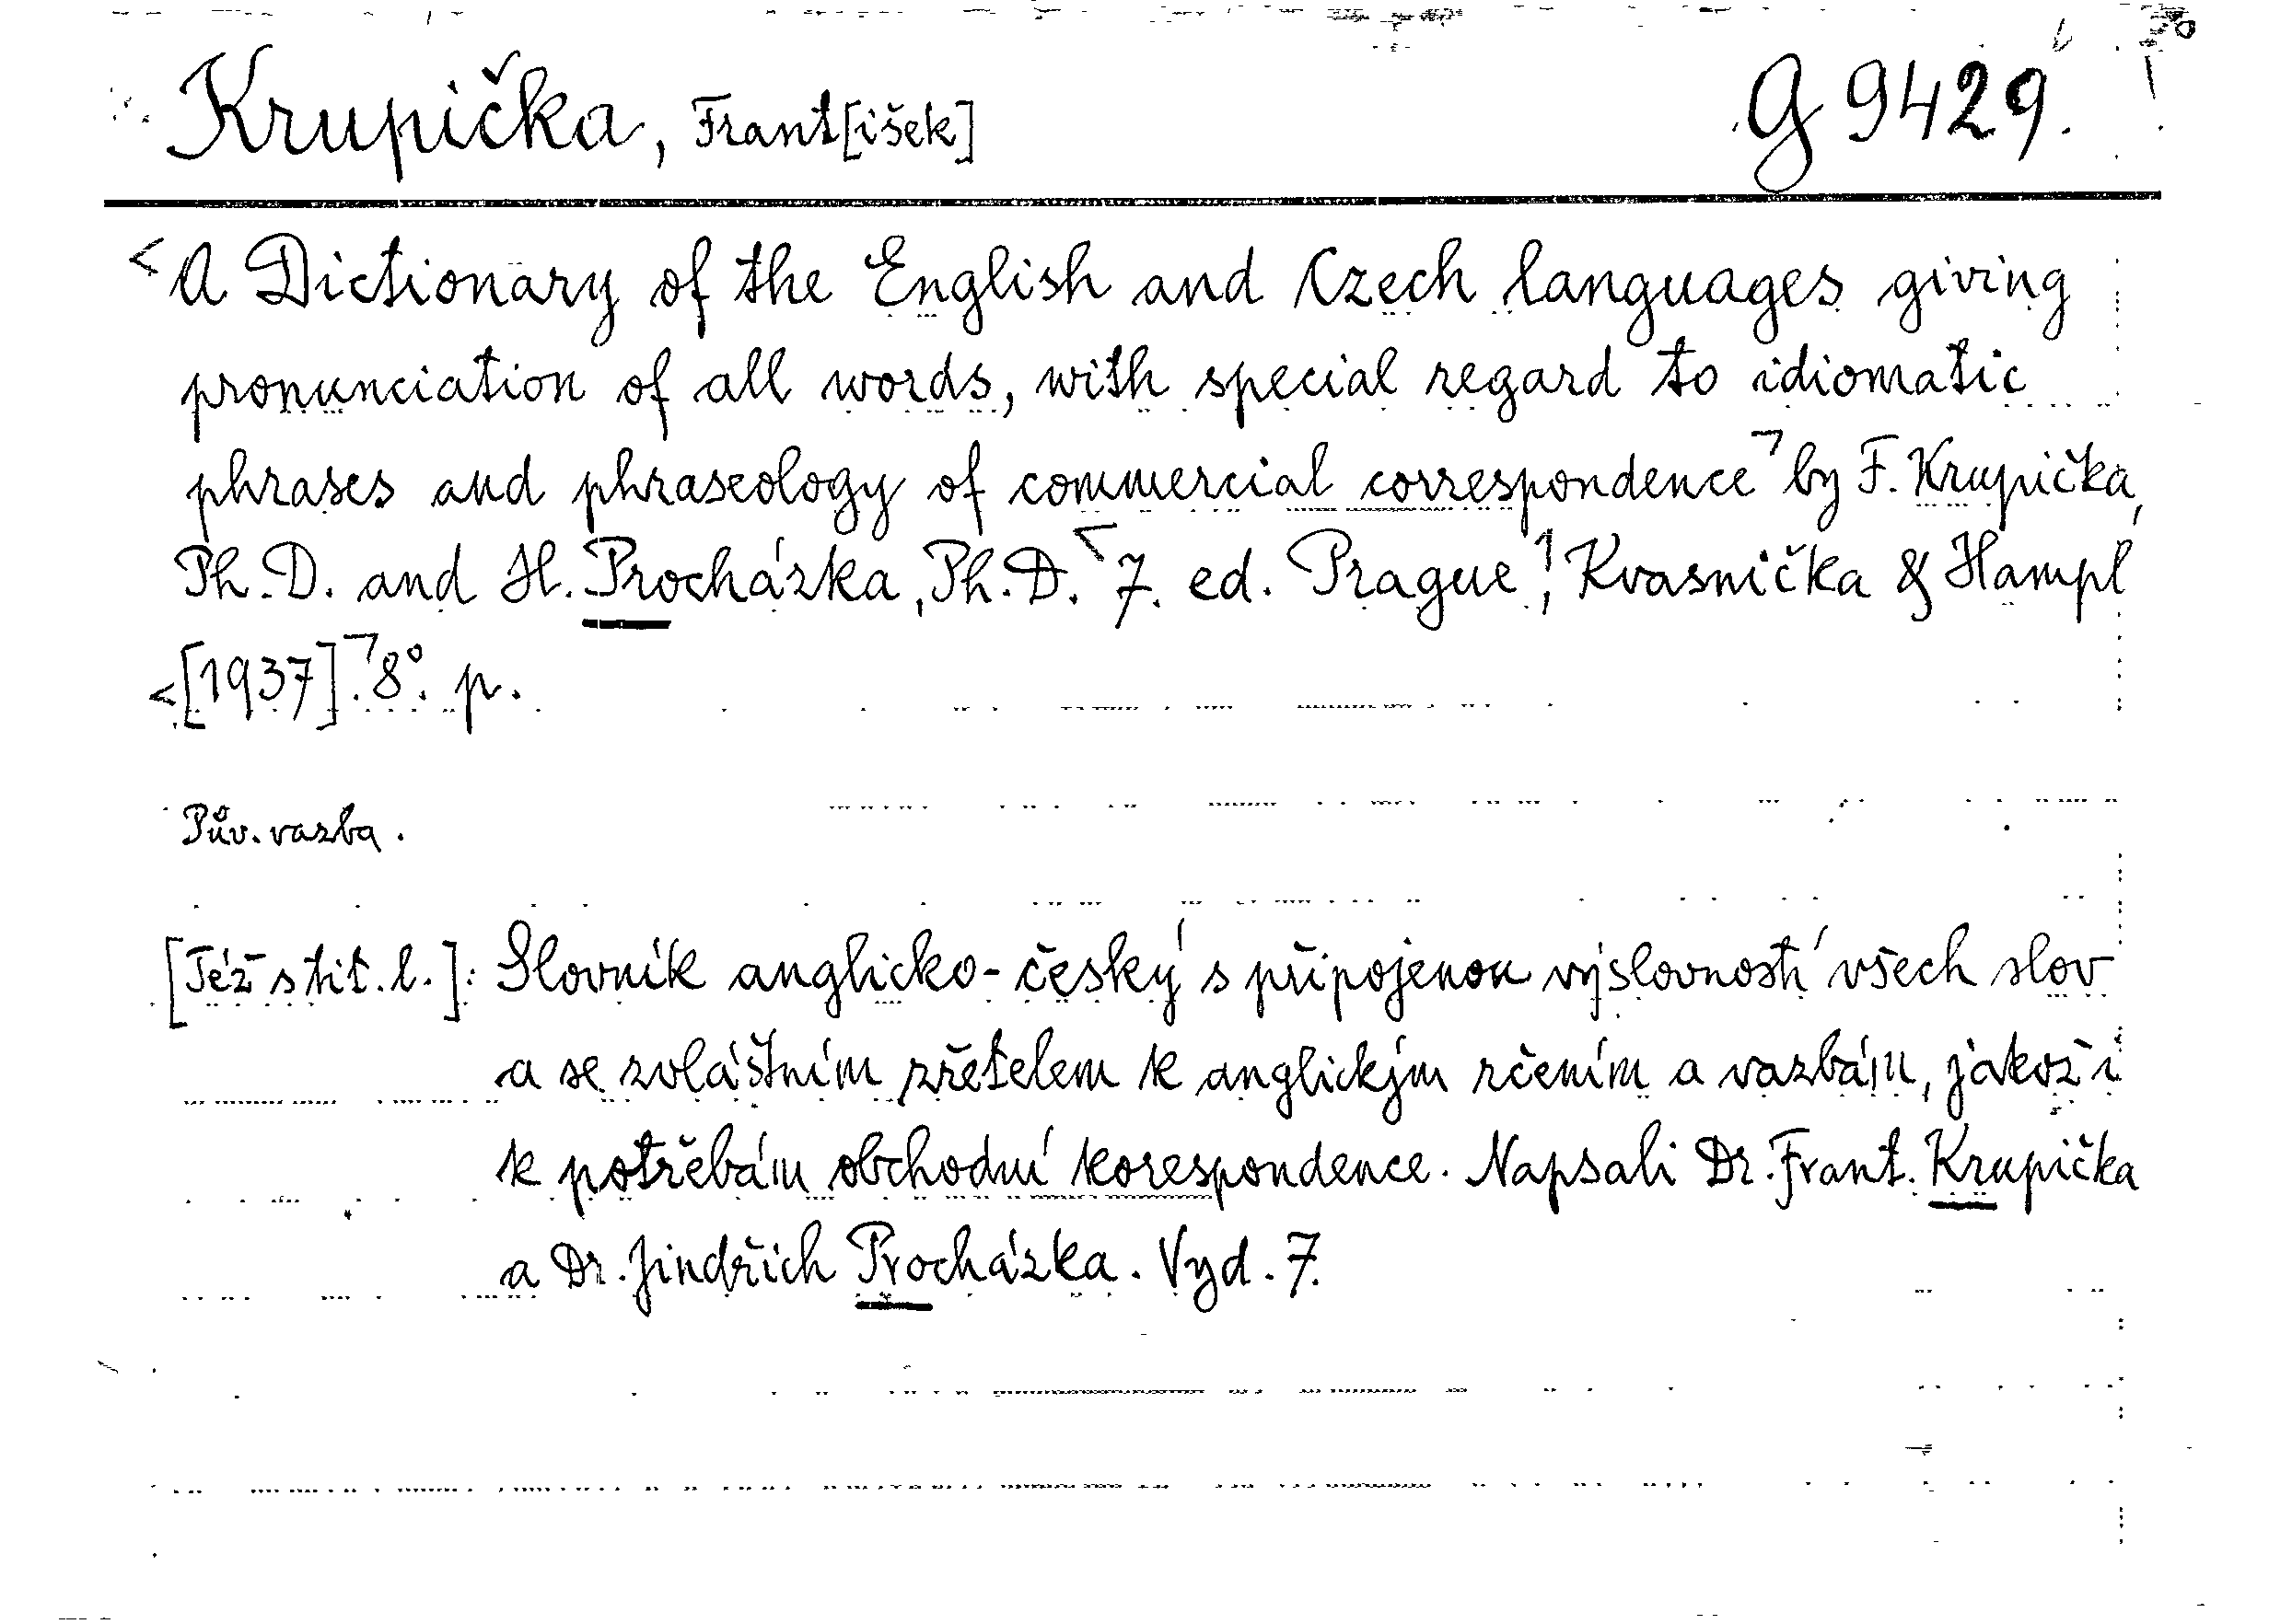 Krupička, Frant[išek]
G 9429.
A Dictionary of the English and Czech languages giving
pronunciation of all words, with special regard to idiomatic
phrases and phraseology of commercial correspondence by F. Krupička,
Ph. D. and H. Procházka, Ph. D. 7. ed. Prague, Kvasnička & Hampl
[1937]. 8°. p.
Pův. vazba.
[Též s tit. l.]: Slovník anglicko-český s připojenou výslovností všech slov
a se zvláštním zřetelem k anglickým rčením a vazbám, jakož i
k potřebám obchodní korespondence. Napsali Dr. Frant. Krupička
a Dr. Jindřich Procházka. Vyd. 7.